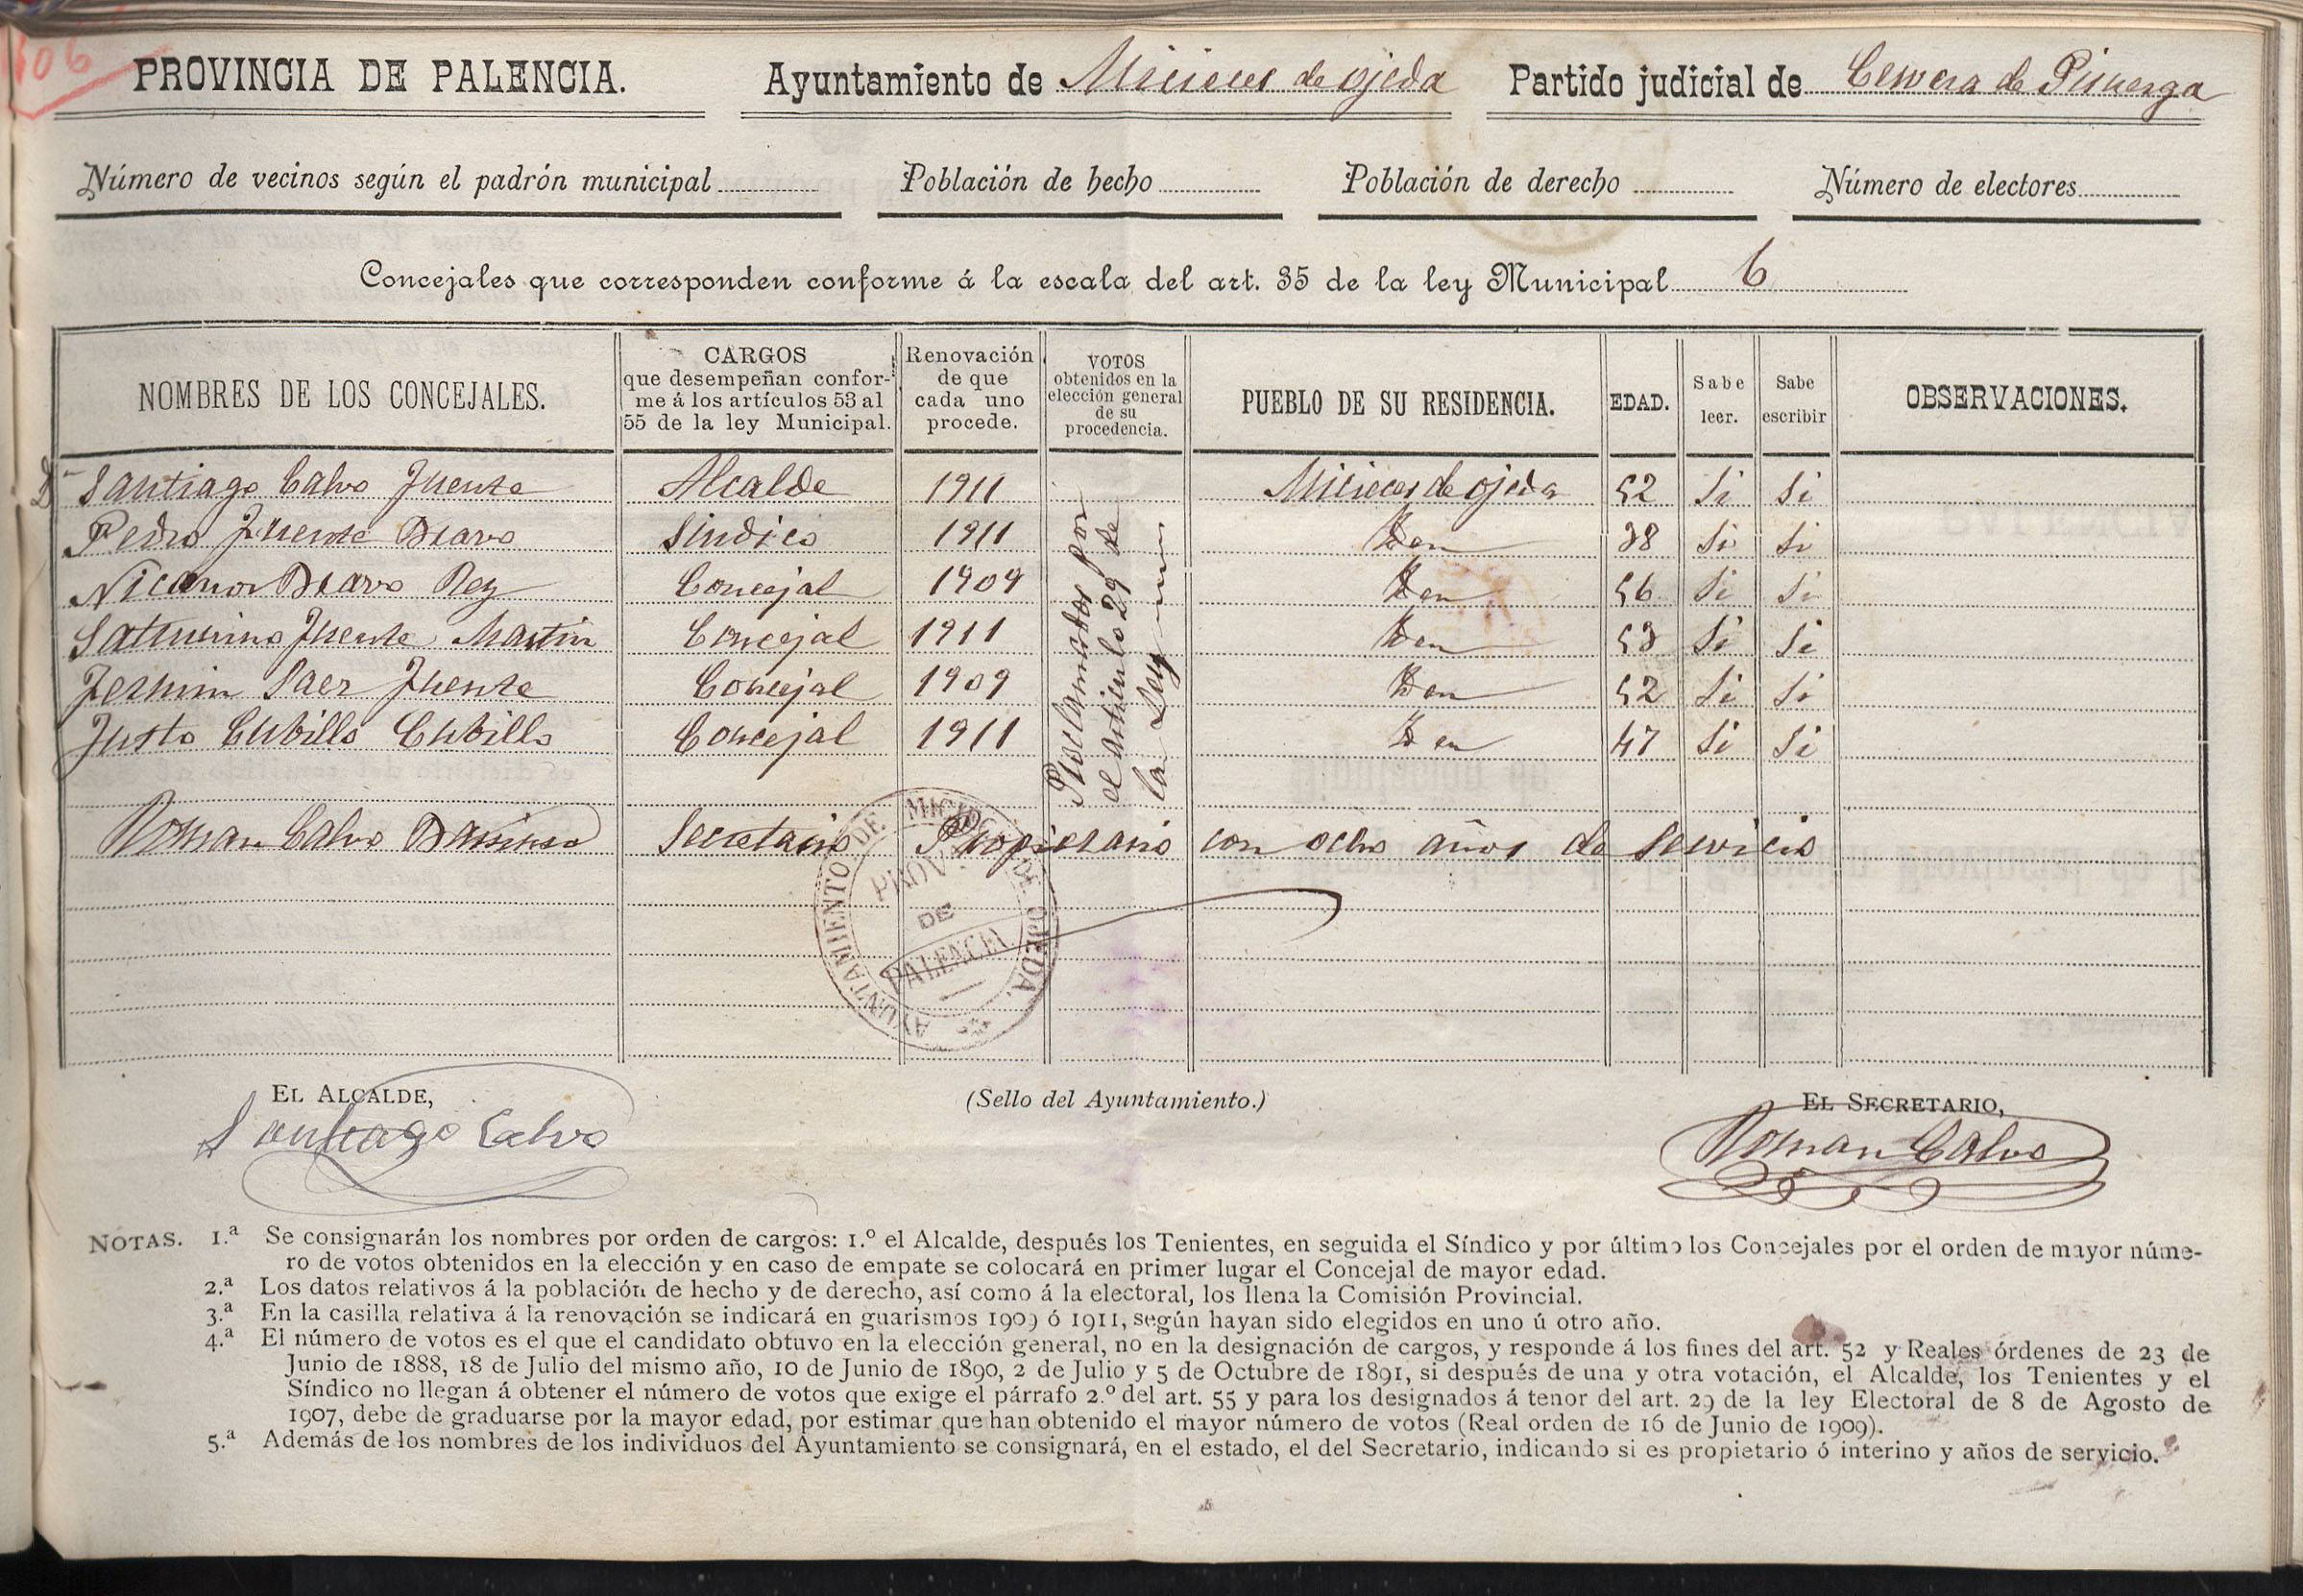 106
PROVINCIA DE PALENCIA. Ayuntamiento de Micieces de ojeda Partido judicial de Cervera de Pisuerga
Número de vecinos según el padrón municipal Población de hecho Población de derecho Número de electores
Concejales que corresponden conforme á la escala del art. 35 de la ley Municipal 6
NOMBRES DE LOS CONCEJALES. CARGOS que desempeñan conforme á los artículos 53 al 55 de la ley Municipal. Renovación de que cada uno procede. VOTOS obtenidos en la elección general de su procedencia. PUEBLO DE SU RESIDENCIA. EDAD. Sabe leer. Sabe escribir OBSERVACIONES.
Dn Santiago Calvo Fuente Alcalde 1911 Micieces de ojeda 52 Si Si
Pedro Fuente Bravo Sindico 1911 Iden 38 Si Si
Nicanor Bravo Rey Concejal 1909 Iden 56 Si Si
Saturnino Fuente Martin Concejal 1911 Iden 53 Si Si
Fermin Saez Fuente Concejal 1909 Iden 52 Si Si
Justo Cubillo Cubillo Concejal 1911 Iden 47 Si Si
Proclamados por
el articulo 29 de
la Ley
Roman Calvo Secretario Propietario con ocho años de servicio
AYUNTAMIENTO DE MICIECES DE OJEDA.
PROVA
DE
PALENCIA
EL ALCALDE, (Sello del Ayuntamiento.) EL SECRETARIO,
Santiago Calvo Roman Calvo
NOTAS. 1.ª Se consignarán los nombres por orden de cargos: 1.º el Alcalde, después los Tenientes, en seguida el Síndico y por último los Concejales por el orden de mayor núme-
ro de votos obtenidos en la elección y en caso de empate se colocará en primer lugar el Concejal de mayor edad.
2.ª Los datos relativos á la población de hecho y de derecho, así como á la electoral, los llena la Comisión Provincial.
3.ª En la casilla relativa á la renovación se indicará en guarismos 1909 ó 1911, según hayan sido elegidos en uno ú otro año.
4.ª El número de votos es el que el candidato obtuvo en la elección general, no en la designación de cargos, y responde á los fines del art. 52 y Reales órdenes de 23 de
Junio de 1888, 18 de Julio del mismo año, 10 de Junio de 1890, 2 de Julio y 5 de Octubre de 1891, si después de una y otra votación, el Alcalde, los Tenientes y el
Síndico no llegan á obtener el número de votos que exige el párrafo 2.º del art. 55 y para los designados á tenor del art. 29 de la ley Electoral de 8 de Agosto de
1907, debe de graduarse por la mayor edad, por estimar que han obtenido el mayor número de votos (Real orden de 16 de Junio de 1909).
5.ª Además de los nombres de los individuos del Ayuntamiento se consignará, en el estado, el del Secretario, indicando si es propietario ó interino y años de servicio.